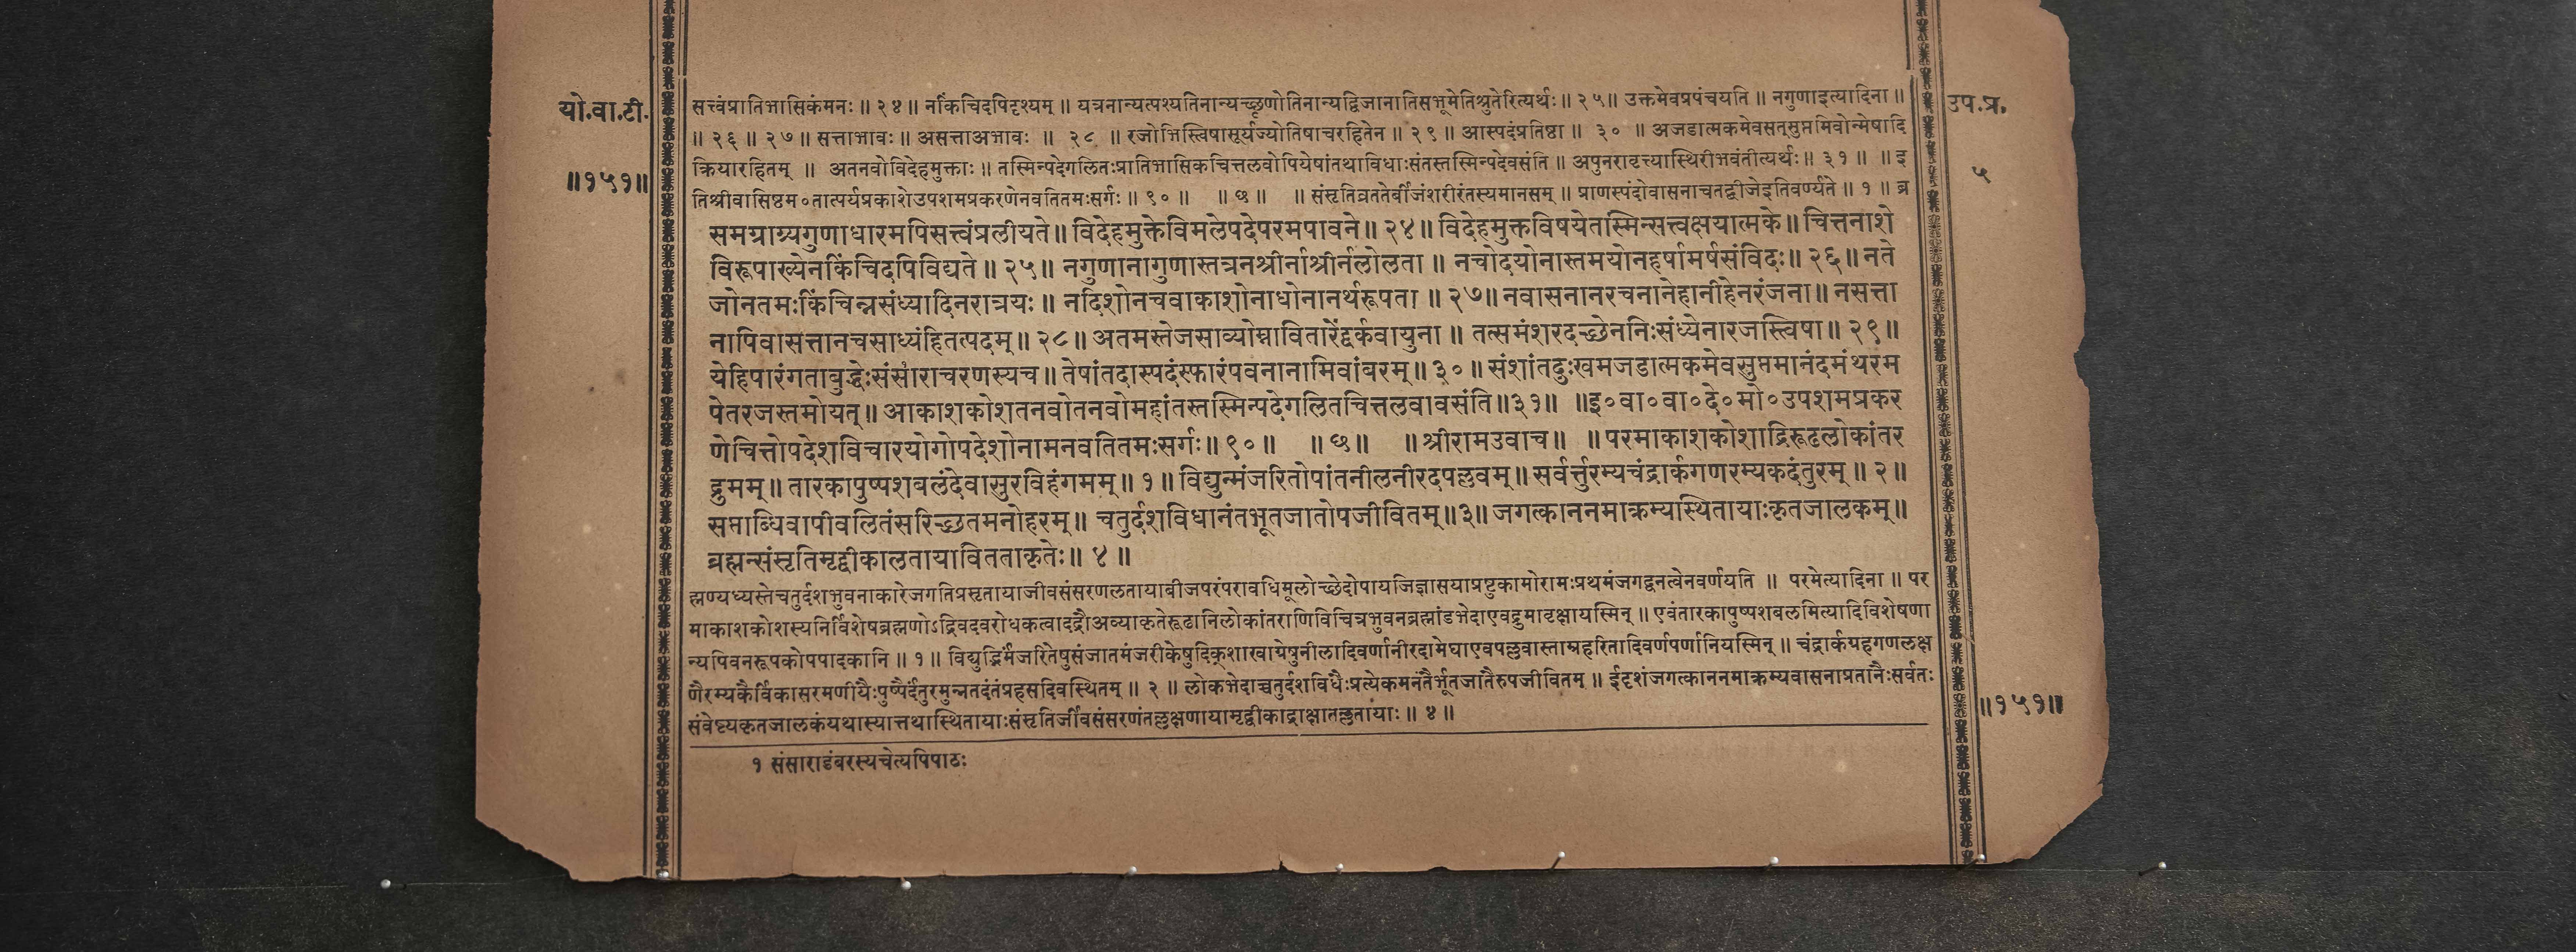 यो.वा.टी.
॥१५१॥
सत्त्वंप्रातिभासिकंमनः ॥ २४ ॥ नकिंचिदपिदृश्यम् ॥ यत्रनान्यत्पश्यतिनान्यच्छृणोतिनान्यद्विजानातिसभूमेतिश्रुतेरित्यर्थः ॥ २५ ॥ उक्तमेवप्रपंचयति ॥ नगुणाइत्यादिना ॥
॥ २६ ॥ २७ ॥ सत्ताभावः ॥ असत्ताअभावः ॥ २८ ॥ रजोभिस्त्विषासूर्यज्योतिषाचरहितेन ॥ २९ ॥ आस्पदंप्रतिष्ठा ॥ ३० ॥ अजडात्मकमेवसत्सुप्तमिवोन्मेषादि
क्रियारहितम् ॥ अतनवोविदेहमुक्ताः ॥ तस्मिन्पदेगलितःप्रातिभासिकचित्तलवोपियेषांतथाविधाःसंतस्तस्मिन्पदेवसंति ॥ अपुनरावृत्त्यास्थिरीभवंतीत्यर्थः ॥ ३१ ॥ ॥ इ
तिश्रीवासिष्ठम०तात्पर्यप्रकाशेउपशमप्रकरणेनवतितमःसर्गः ॥ ९० ॥ ॥ छ ॥ ॥ संसृतिव्रततेर्बीजंशरीरंतस्यमानसम् ॥ प्राणस्पंदोवासनाचतद्बीजेइतिवर्ण्यते ॥ १ ॥ ब्र
समग्राग्र्यगुणाधारमपिसत्त्वंप्रलीयते ॥ विदेहमुक्तेविमलेपदेपरमपावने ॥ २४ ॥ विदेहमुक्तविषयेतस्मिन्सत्त्वक्षयात्मके ॥ चित्तनाशे
विरूपाख्येनकिंचिदपिविद्यते ॥ २५ ॥ नगुणानागुणास्तत्रनश्रीर्नाश्रीर्नलोलता ॥ नचोदयोनास्तमयोनहर्षामर्षसंविदः ॥ २६ ॥ नते
जोनतमःकिंचिन्नसंध्यादिनरात्रयः ॥ नदिशोनचवाकाशोनाधोनानर्थरूपता ॥ २७ ॥ नवासनानरचनानेहानीहेनरंजना ॥ नसत्ता
नापिवासत्तानचसाध्यंहितत्पदम् ॥ २८ ॥ अतमस्तेजसाव्योम्नावितारेंद्वर्कवायुना ॥ तत्समंशरदच्छेननिःसंध्येनारजस्त्विषा ॥ २९ ॥
येहिपारंगताबुद्धेःसंसाराचरणस्यच ॥ तेषांतदास्पदंस्फारंपवनानामिवांबरम् ॥ ३० ॥ संशांतदुःखमजडात्मकमेवसुप्तमानंदमंथरम
पेतरजस्तमोयत् ॥ आकाशकोशतनवोतनवोमहांतस्तस्मिन्पदेगलितचित्तलवावसंति ॥३१॥ ॥इ०वा०वा०दे०मो०उपशमप्रकर
णेचित्तोपदेशविचारयोगोपदेशोनामनवतितमःसर्गः ॥ ९० ॥ ॥ छ ॥ ॥ श्रीरामउवाच ॥ ॥ परमाकाशकोशाद्रिरूढलोकांतर
द्रुमम् ॥ तारकापुष्पशबलंदेवासुरविहंगमम् ॥ १ ॥ विद्युन्मंजरितोपांतनीलनीरदपल्लवम् ॥ सर्वर्त्तुरम्यचंद्रार्कगणरम्यकदंतुरम् ॥ २ ॥
सप्ताब्धिवापीवलितंसरिच्छतमनोहरम् ॥ चतुर्दशविधानंतभूतजातोपजीवितम् ॥३॥ जगत्काननमाक्रम्यस्थितायाःकृतजालकम् ॥
ब्रह्मन्संसृतिमृद्वीकालतायावितताकृतेः ॥ ४ ॥
ह्मण्यध्यस्तेचतुर्दशभुवनाकारेजगतिप्रसृतायाजीवसंसरणलतायाबीजपरंपरावधिमूलोच्छेदोपायजिज्ञासयाप्रष्टुकामोरामःप्रथमंजगद्वनत्वेनवर्णयति ॥ परमेत्यादिना ॥ पर
माकाशकोशस्यनिर्विशेषब्रह्मणोऽद्रिवदवरोधकत्वादद्रौअव्याकृतेरूढानिलोकांतराणिविचित्रभुवनब्रह्मांडभेदाएवद्रुमावृक्षायस्मिन् ॥ एवंतारकापुष्पशबलमित्यादिविशेषणा
न्यपिवनरूपकोपपादकानि ॥ १ ॥ विद्युद्भिर्मंजरितेषुसंजातमंजरीकेषुदिक्शाखाग्रेषुनीलादिवर्णानीरदामेघाएवपल्लवास्ताम्रहरितादिवर्णपर्णानियस्मिन् ॥ चंद्रार्कग्रहगणलक्ष
णैरम्यकैर्विकासरमणीयैःपुष्पैर्दंतुरमुन्नतदंतंप्रहसदिवस्थितम् ॥ २ ॥ लोकभेदाच्चतुर्दशविधैःप्रत्येकमनंतैर्भूतजातैरुपजीवितम् ॥ ईदृशंजगत्काननमाक्रम्यवासनाप्रतानैःसर्वतः
संवेष्ट्यकृतजालकंयथास्यात्तथास्थितायाःसंसृतिर्जीवसंसरणंतल्लक्षणायामृद्वीकाद्राक्षातल्लतायाः ॥ ४ ॥
१ संसाराडंबरस्यचेत्यपिपाठः
उप.प्र.
५
॥१५१॥